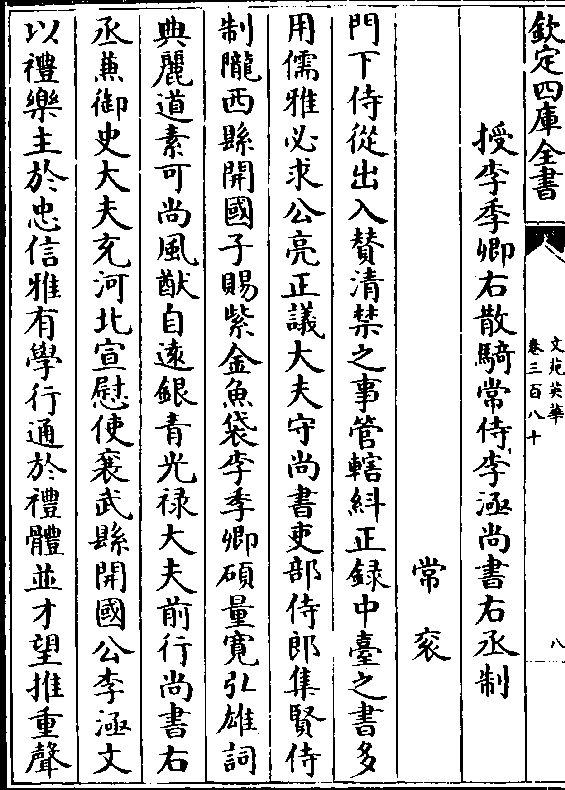 欽定四庫全書
文苑英華
卷三百八十
八
授李季卿右散騎常侍李涵尚書右丞制
常衮
門下侍從出入賛清禁之事管轄糾正録中臺之書多
用儒雅必求公亮正議大夫守尚書吏部侍郎集賢侍
制隴西縣開國子賜紫金魚袋李季卿碩量寛弘雄詞
典麗道素可尚風猷自逺銀青光禄大夫前行尚書右
丞兼御史大夫充河北宣慰使襄武縣開國公李涵文
以禮樂主於忠信雅有學行通於禮體並才望推重聲